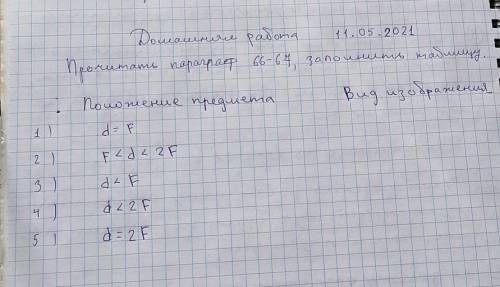 Домашняя работа 11.05.2021
Прочитать параграф 66-67, запомнить таблицу.
: Положение предмета Вид изображения
1) d = F
2) F < d < 2F
3) d < F
4) d < 2F
5) d = 2F